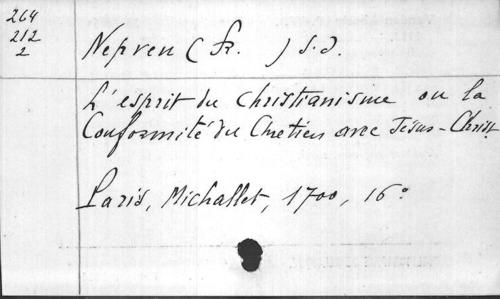 264
212
2
Nepveu (Fr. ) S.J.
L'esprit du Christianisme ou la
Conformité du Chretien avec Jésus-Christ
Paris, Michallet, 1700, 16°